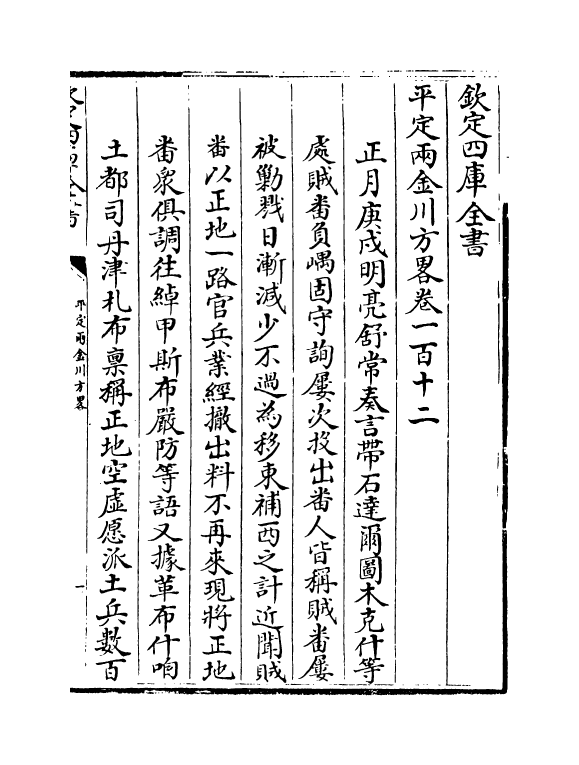 欽定四庫全書
平定兩金川方畧卷一百十二
正月庚戌明亮舒常奏言帶石達爾圖木克什等
處賊番負嵎固守詢屢次投出番人皆稱賊番屢
被勦戮日漸減少不過為移東補西之計近聞賊
番以正地一路官兵業經撤出料不再來現將正地
番衆俱調往綽甲斯布嚴防等語又據革布什咱
土都司丹津札布禀稱正地空虛愿派土兵數百
平定兩金川方畧
一